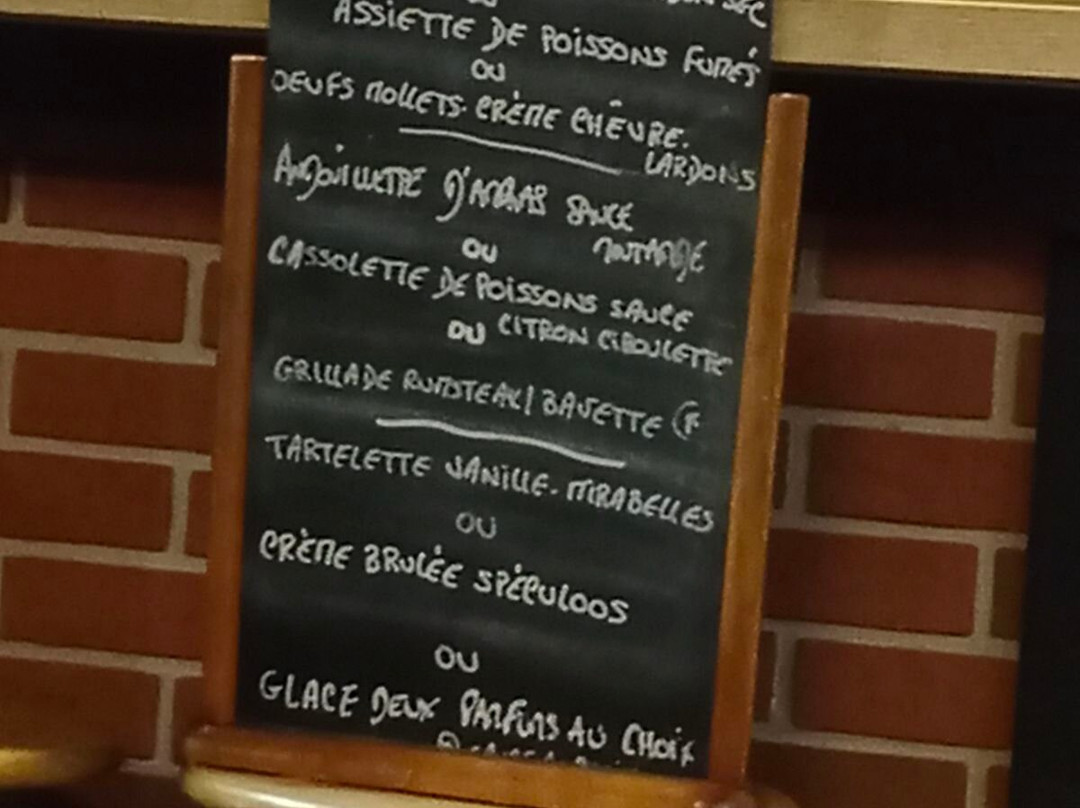 SEC
ASSIETTE DE POISSONS FUMÉS
OU
OEUFS MOLLETS. CRÈME CHÈVRE.
LARDONS
ANDOUILLETTE D'ARRAS SAUCE
MOUTARDE
OU
CASSOLETTE DE POISSONS SAUCE
CITRON CIBOULETTE
OU
GRILLADE RUMSTEAK / BAVETTE
TARTELETTE VANILLE. MIRABELLES
OU
CRÈME BRULÉE SPÉCULOOS
OU
GLACE DEUX PARFUMS AU CHOIX